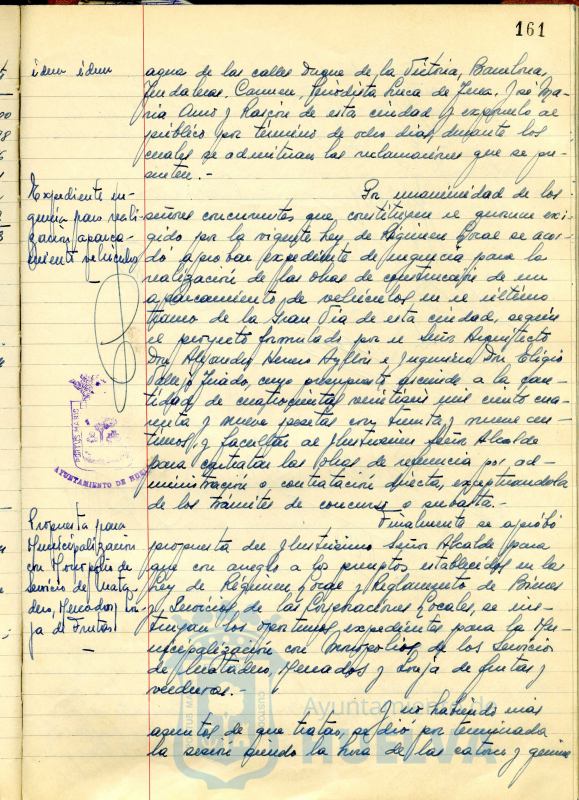 161
idem idem
agua de las calles Duque de la Victoria, Barcelona,
Jendaleras, Carmen, Periodista Luca de Tena, José Ma-
ria Amo y Rascón de esta ciudad y exponerlo al
público por término de ocho dias, durante los
cuales se admitiran las reclamaciones que se pre-
senten.-
Expediente ur-
gencia para reali-
zación aparca-
miento vehiculos
Por unanimidad de los
señores concurrentes que constituyen el quorum exi-
gido por la vigente Ley de Régimen Local se acor-
dó aprobar expediente de urgencia para la
realización de las obras de construcción de un
aparcamiento de vehiculos en el último
tramo de la Gran Via de esta ciudad, según
el proyecto formulado por el Señor Arquitecto
Don Alejandro Herrero Ayllón e Ingeniero Don Eligio
Vallejo Tirado, cuyo presupuesto asciende a la can-
tidad de cuatrocientas mil ciento cua-
renta y nueve pesetas con treinta y nueve cen-
timos, y facultar al Ilustrisimo Señor Alcalde
para contratar las obras de referencia por ad-
ministración o contratación directa, exceptuandola
de los trámites de concurso o subasta.-
AYUNTAMIENTO DE HUELVA
Propuesta para
Municipalización
con Monopolio de
Servicio de Mata-
dero, Mercados y Lon-
ja de Frutas
Finalmente se aprobó
propuesta del Ilustrisimo Señor Alcalde para
que con arreglo a los preceptos establecidos en la
Ley de Régimen Local y Reglamento de Bienes
y Servicios, de las Corporaciones Locales, se ins-
truyan los oportunos expedientes para la Mu-
nicipalización con Monopolio, de los Servicios
de Matadero, Mercados y Lonja de frutas y
verduras.-
Y no habiendo mas
asuntos de que tratar, se dió por terminada
la sesión siendo la hora de las catorce y quince
Ayuntamiento de
HUELVA